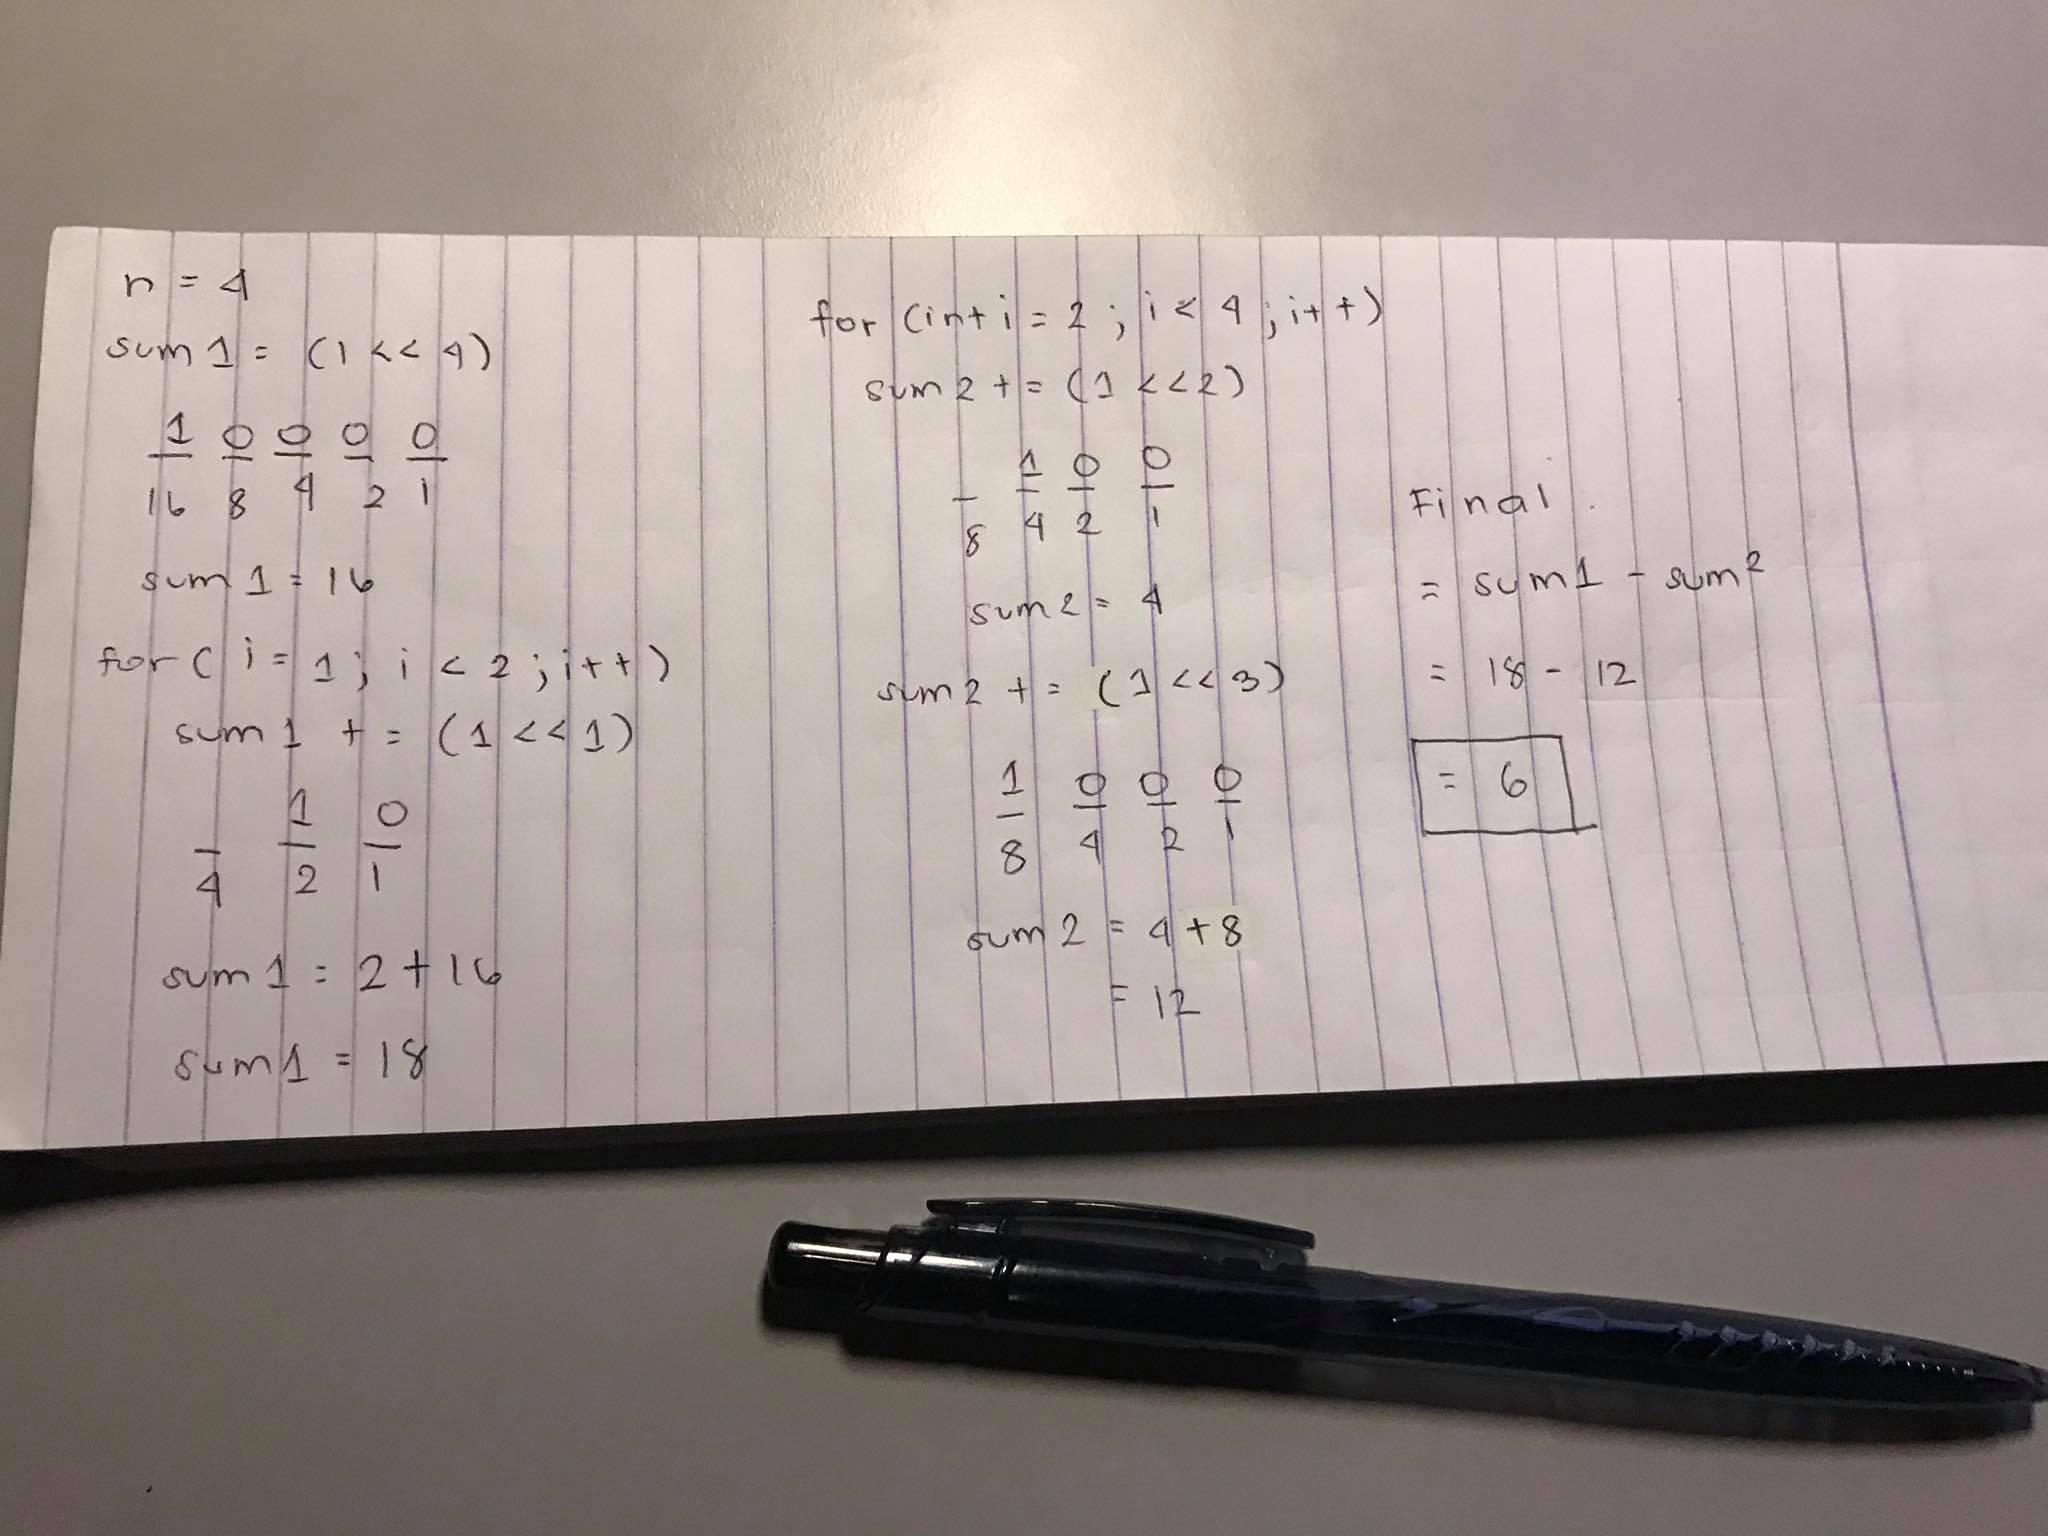 n = 4
sum1 = (1 << 4)
1 0 0 0 0
16 8 4 2 1
sum1 = 16
for ( i = 1; i < 2; i++)
sum1 += (1 << 1)
_ 1 0
4 2 1
sum1 = 2 + 16
sum1 = 18
for (int i = 2; i < 4; i++)
sum2 += (1 << 2)
_ 1 0 0
8 4 2 1
sum2 = 4
sum2 += (1 << 3)
1 0 0 0
8 4 2 1
sum2 = 4 + 8
= 12
Final
= sum1 - sum2
= 18 - 12
= 6